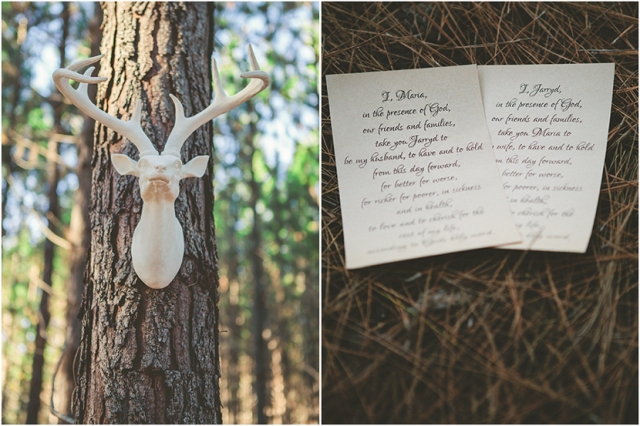 I, Maria,
in the presence of God,
our friends and families,
take you Jarryd to
be my husband, to have and to hold
from this day forward,
for better for worse,
for richer for poorer, in sickness
and in health,
to love and to cherish for the
rest of my life,
according to Gods holy word.
I, Jarryd,
in the presence of God,
our friends and families,
take you Maria to
wife, to have and to hold
from this day forward,
for better for worse,
for poorer, in sickness
in health,
to cherish for the
of my life,